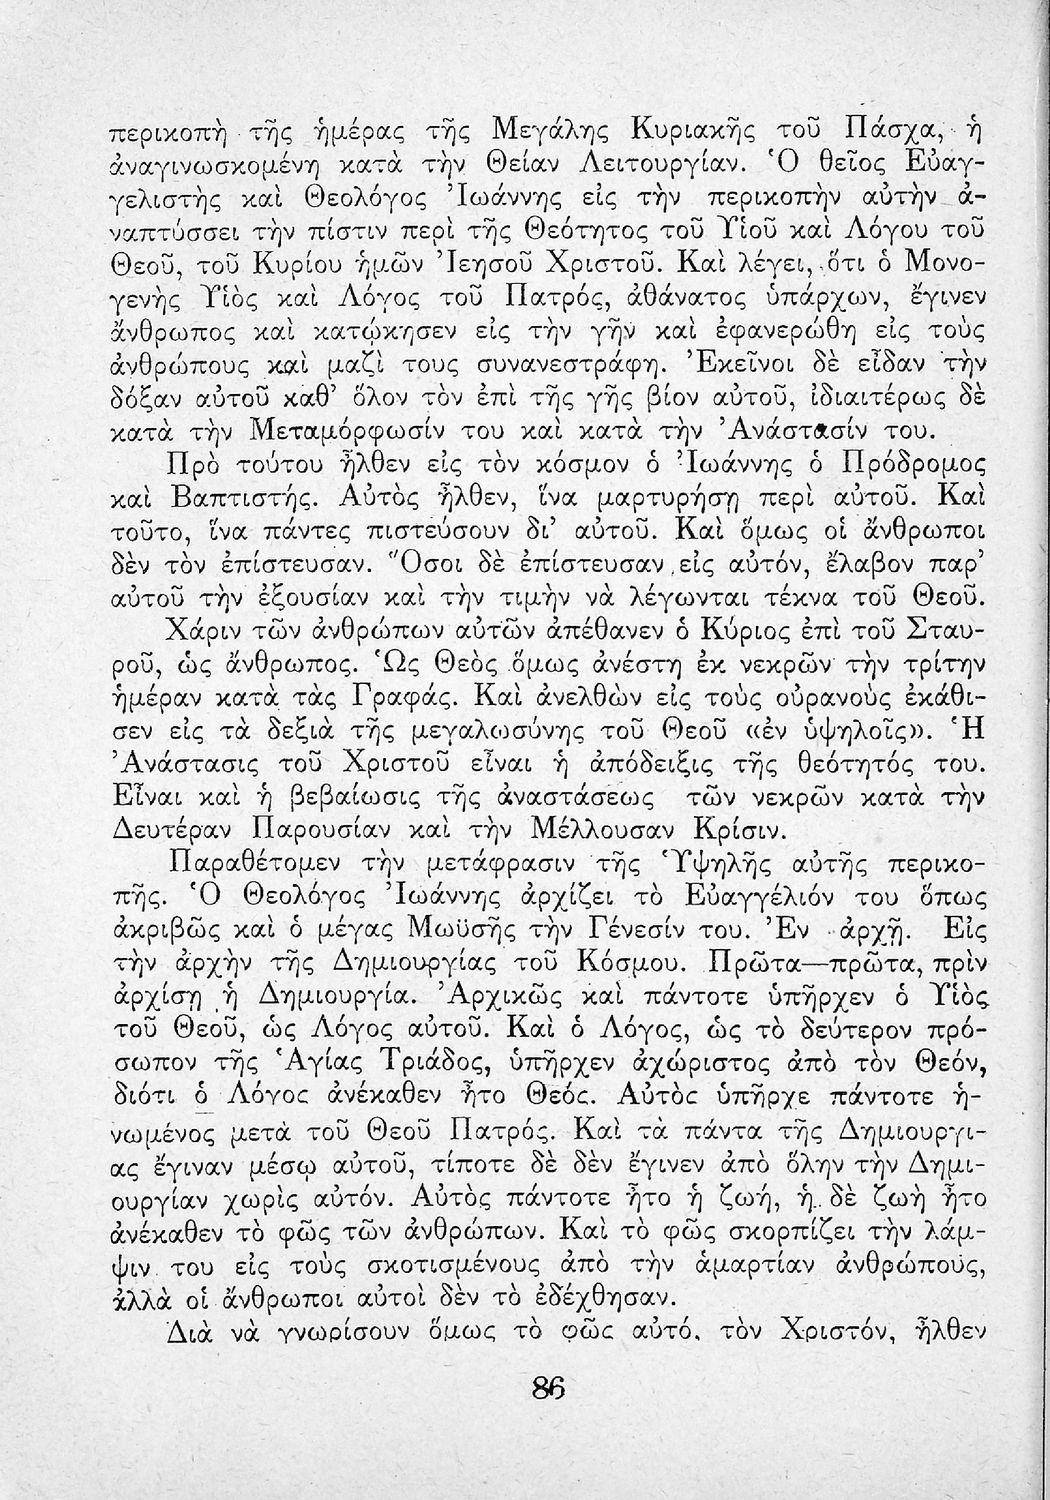 περικοπὴ τῆς ἡμέρας τῆς Μεγάλης Κυριακῆς τοῦ Πάσχα, ἡ
ἀναγινωσκομένη κατὰ τὴν Θείαν Λειτουργίαν. Ὁ θεῖος Εὐαγ-
γελιστὴς καὶ Θεολόγος Ἰωάννης εἰς τὴν περικοπὴν αὐτὴν ἀ-
ναπτύσσει τὴν πίστιν περὶ τῆς Θεότητος τοῦ Υἱοῦ καὶ Λόγου τοῦ
Θεοῦ, τοῦ Κυρίου ἡμῶν Ἰεησοῦ Χριστοῦ. Καὶ λέγει, ὅτι ὁ Μονο-
γενὴς Υἱὸς καὶ Λόγος τοῦ Πατρός, ἀθάνατος ὑπάρχων, ἔγινεν
ἄνθρωπος καὶ κατῴκησεν εἰς τὴν γῆν καὶ ἐφανερώθη εἰς τοὺς
ἀνθρώπους καὶ μαζὶ τους συνανεστράφη. Ἐκεῖνοι δὲ εἶδαν τὴν
δόξαν αὐτοῦ καθ’ ὅλον τὸν ἐπὶ τῆς γῆς βίον αὐτοῦ, ἰδιαιτέρως δὲ
κατὰ τὴν Μεταμόρφωσίν του καὶ κατὰ τὴν Ἀνάστασίν του.
Πρὸ τούτου ἦλθεν εἰς τὸν κόσμον ὁ Ἰωάννης ὁ Πρόδρομος
καὶ Βαπτιστής. Αὐτὸς ἦλθεν, ἵνα μαρτυρήσῃ περὶ αὐτοῦ. Καὶ
τοῦτο, ἵνα πάντες πιστεύσουν δι’ αὐτοῦ. Καὶ ὅμως οἱ ἄνθρωποι
δὲν τὸν ἐπίστευσαν. Ὅσοι δὲ ἐπίστευσαν εἰς αὐτόν, ἔλαβον παρ’
αὐτοῦ τὴν ἐξουσίαν καὶ τὴν τιμὴν νὰ λέγωνται τέκνα τοῦ Θεοῦ.
Χάριν τῶν ἀνθρώπων αὐτῶν ἀπέθανεν ὁ Κύριος ἐπὶ τοῦ Σταυ-
ροῦ, ὡς ἄνθρωπος. Ὡς Θεὸς ὅμως ἀνέστη ἐκ νεκρῶν τὴν τρίτην
ἡμέραν κατὰ τὰς Γραφάς. Καὶ ἀνελθὼν εἰς τοὺς οὐρανοὺς ἐκάθι-
σεν εἰς τὰ δεξιὰ τῆς μεγαλωσύνης τοῦ Θεοῦ «ἐν ὑψηλοῖς». Ἡ
Ἀνάστασις τοῦ Χριστοῦ εἶναι ἡ ἀπόδειξις τῆς θεότητός του.
Εἶναι καὶ ἡ βεβαίωσις τῆς ἀναστάσεως τῶν νεκρῶν κατὰ τὴν
Δευτέραν Παρουσίαν καὶ τὴν Μέλλουσαν Κρίσιν.
Παραθέτομεν τὴν μετάφρασιν τῆς Ὑψηλῆς αὐτῆς περικο-
πῆς. Ὁ Θεολόγος Ἰωάννης ἀρχίζει τὸ Εὐαγγέλιόν του ὅπως
ἀκριβῶς καὶ ὁ μέγας Μωϋσῆς τὴν Γένεσίν του. Ἐν ἀρχῇ. Εἰς
τὴν ἀρχὴν τῆς Δημιουργίας τοῦ Κόσμου. Πρῶτα—πρῶτα, πρὶν
ἀρχίσῃ ἡ Δημιουργία. Ἀρχικῶς καὶ πάντοτε ὑπῆρχεν ὁ Υἱὸς
τοῦ Θεοῦ, ὡς Λόγος αὐτοῦ. Καὶ ὁ Λόγος, ὡς τὸ δεύτερον πρό-
σωπον τῆς Ἁγίας Τριάδος, ὑπῆρχεν ἀχώριστος ἀπὸ τὸν Θεόν,
διότι ὁ Λόγος ἀνέκαθεν ἦτο Θεός. Αὐτὸς ὑπῆρχε πάντοτε ἡ-
νωμένος μετὰ τοῦ Θεοῦ Πατρός. Καὶ τὰ πάντα τῆς Δημιουργί-
ας ἔγιναν μέσῳ αὐτοῦ, τίποτε δὲ δὲν ἔγινεν ἀπὸ ὅλην τὴν Δημι-
ουργίαν χωρὶς αὐτόν. Αὐτὸς πάντοτε ἦτο ἡ ζωή, ἡ δὲ ζωὴ ἦτο
ἀνέκαθεν τὸ φῶς τῶν ἀνθρώπων. Καὶ τὸ φῶς σκορπίζει τὴν λάμ-
ψιν του εἰς τοὺς σκοτισμένους ἀπὸ τὴν ἁμαρτίαν ἀνθρώπους,
ἀλλὰ οἱ ἄνθρωποι αὐτοὶ δὲν τὸ ἐδέχθησαν.
Διὰ νὰ γνωρίσουν ὅμως τὸ φῶς αὐτό, τὸν Χριστόν, ἦλθεν
86